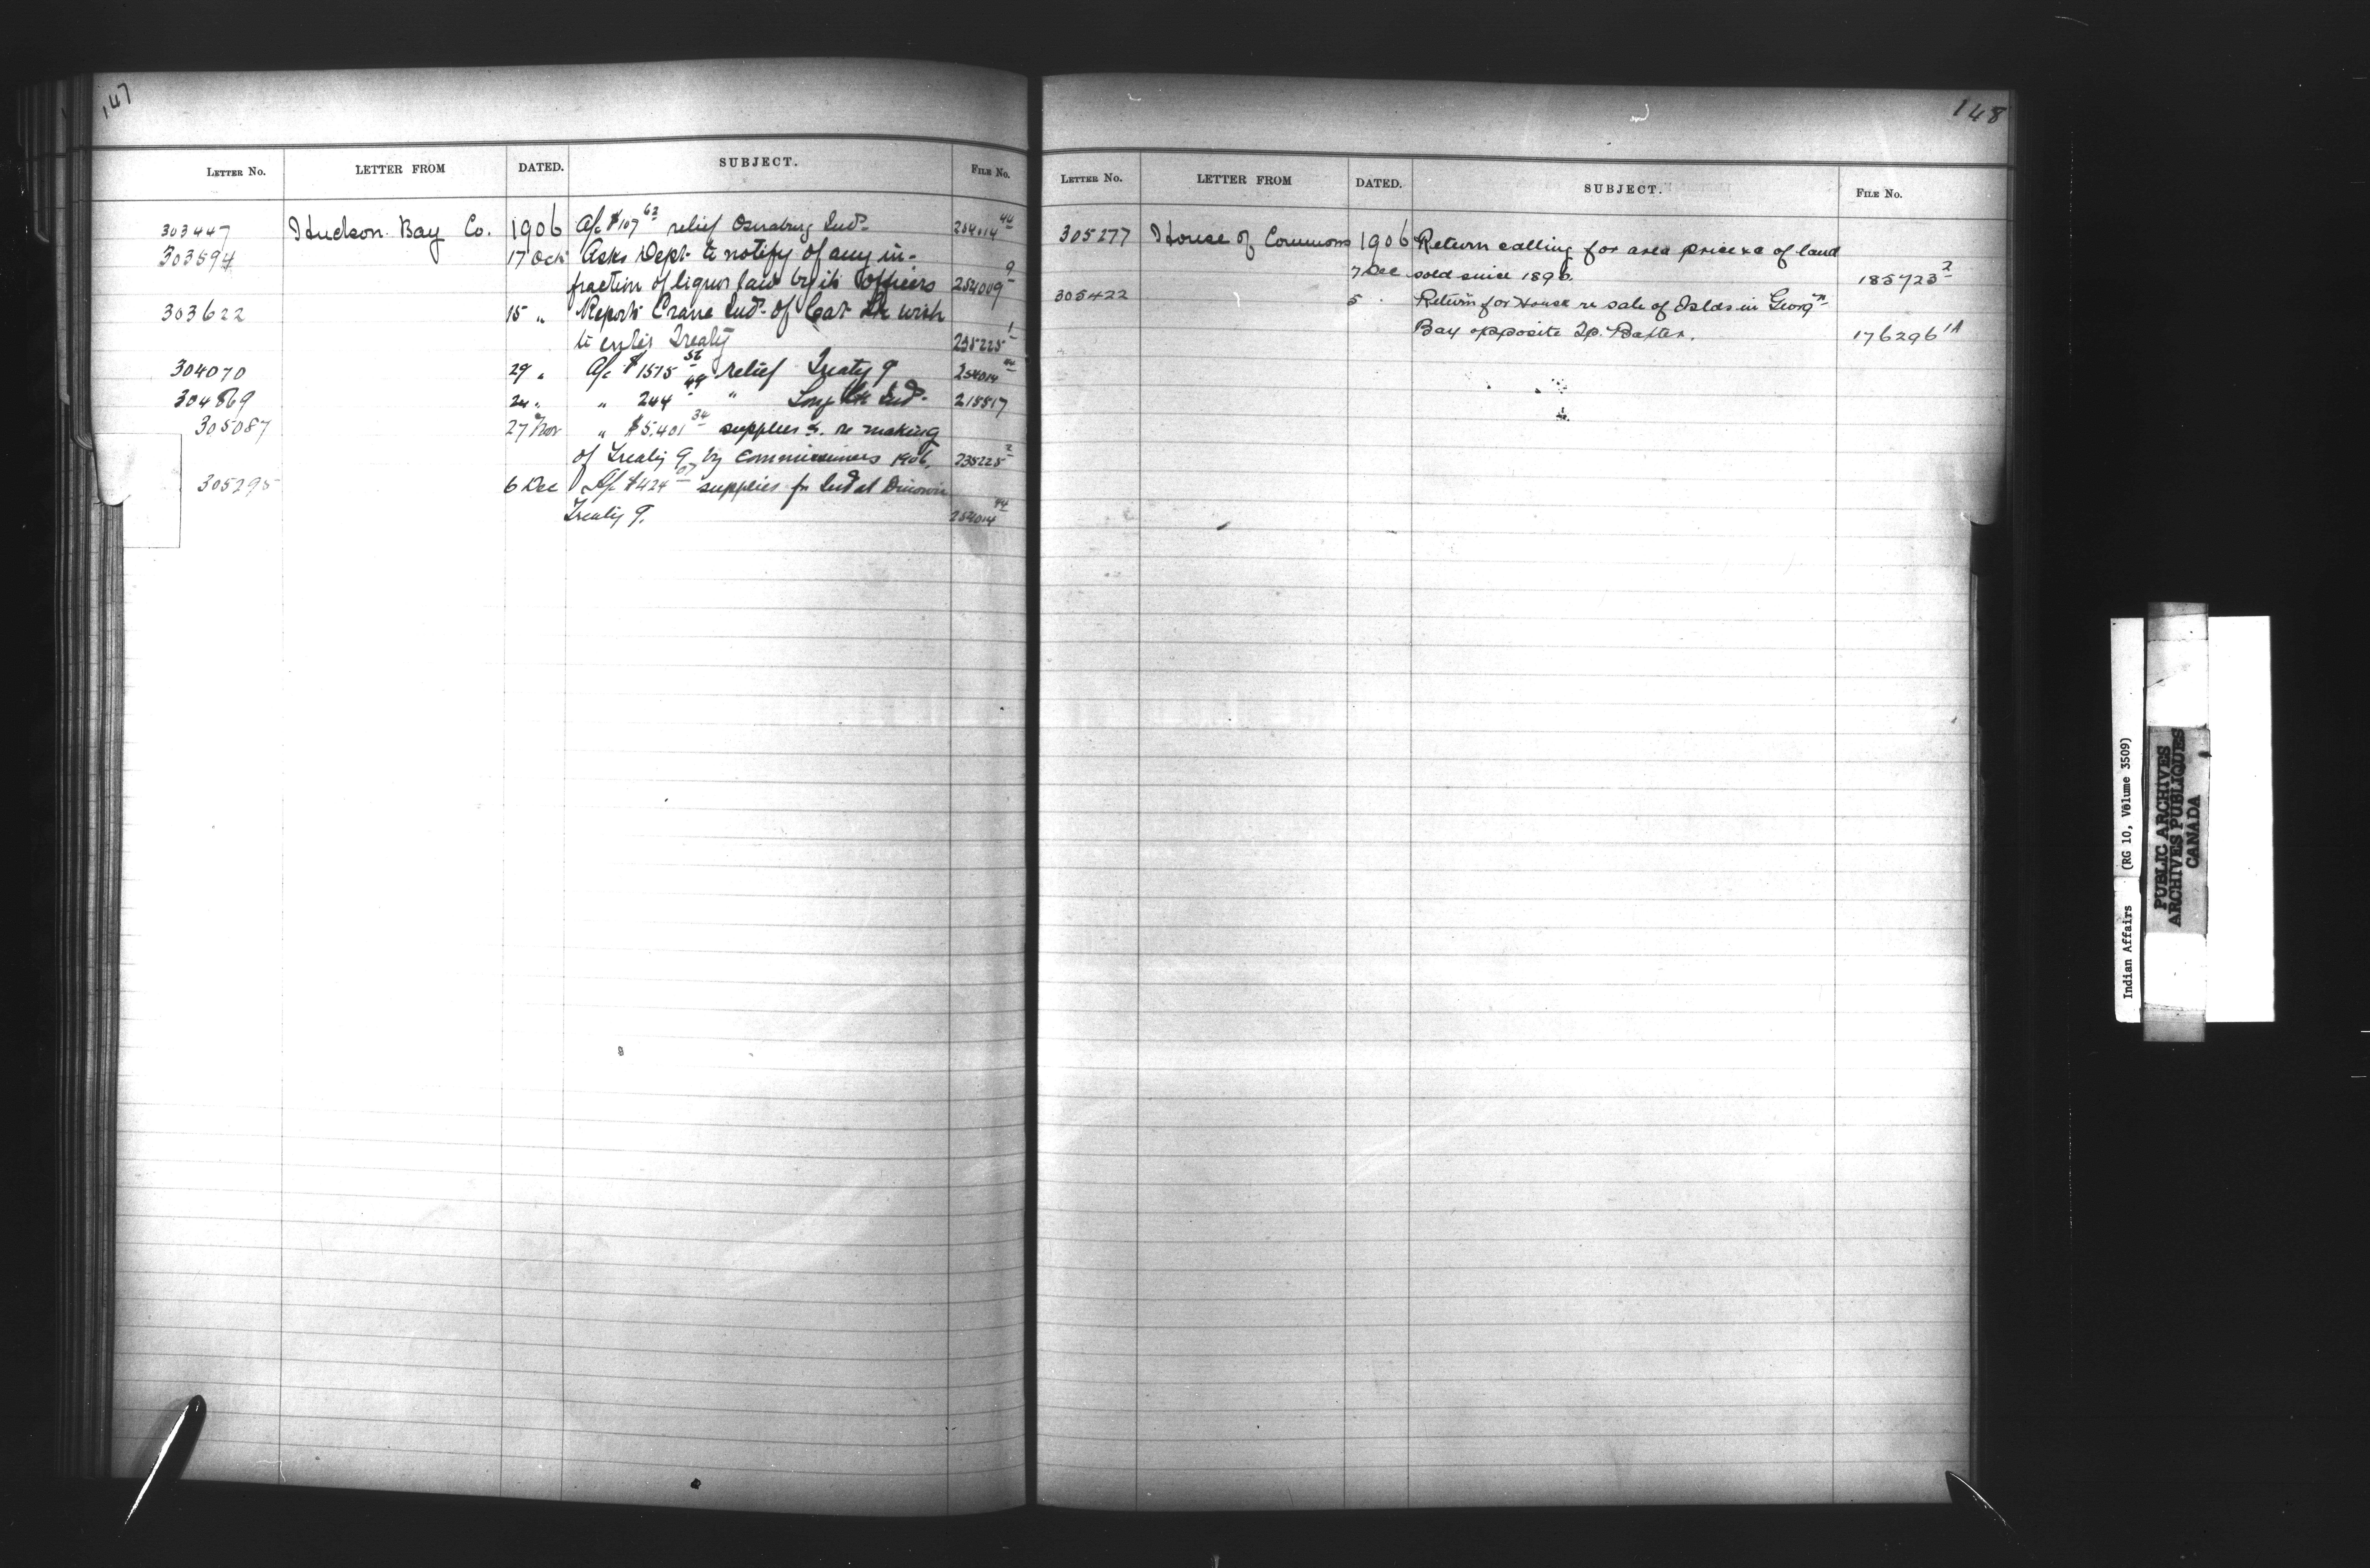 147
LETTER No. LETTER FROM DATED. SUBJECT. FILE No.
303447 Hudson Bay Co. 1906 A/c $107 62 relief Osnaburg Inds. 254014 44
303594 17 Oct Asks Dept. to notify of any in-
fraction of liquor law by its officers 254009 9
303622 15 " Reports Crane Inds. of Cat Lk wish
to enter Treaty 235225 1
304070 29 " A/c $1575 52 relief Treaty 9 254014 44
304869 24 " " 244 49 " Long Lk Inds. 215517
305087 27 Nov " $5,401 34 supplies &. re making
of Treaty 9 by Commissioners 1906. 235225 2
305295 6 Dec A/c $424 07 supplies for Inds at Dinorwic
Treaty 9. 254014 44
148
LETTER No. LETTER FROM DATED. SUBJECT. FILE No.
305277 House of Commons 1906 Return calling for area price &c of land
7 Dec sold since 1896. 185723 2
305422 5 " Return for House re sale of Islds in Georgn
Bay opposite Tp. Baxter. 176296 1A
Indian Affairs (RG 10, Volume 3509)
PUBLIC ARCHIVES
ARCHIVES PUBLIQUES
CANADA